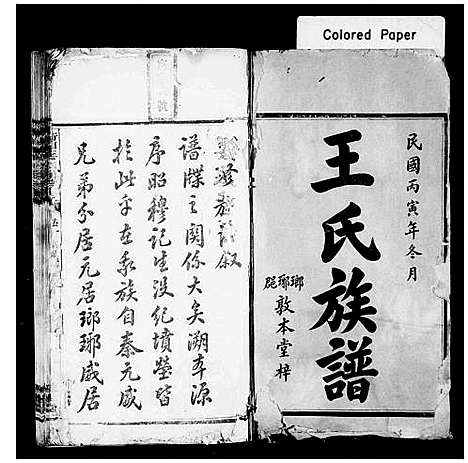 Colored Paper
民國丙寅年冬月
王氏族譜
瑯琊郡
敦本堂梓
號
叙
譜牒之關係大矣溯本源
序昭穆記生沒紀墳塋皆
於此乎在我族自秦元威
兄弟分居元居瑯琊威居